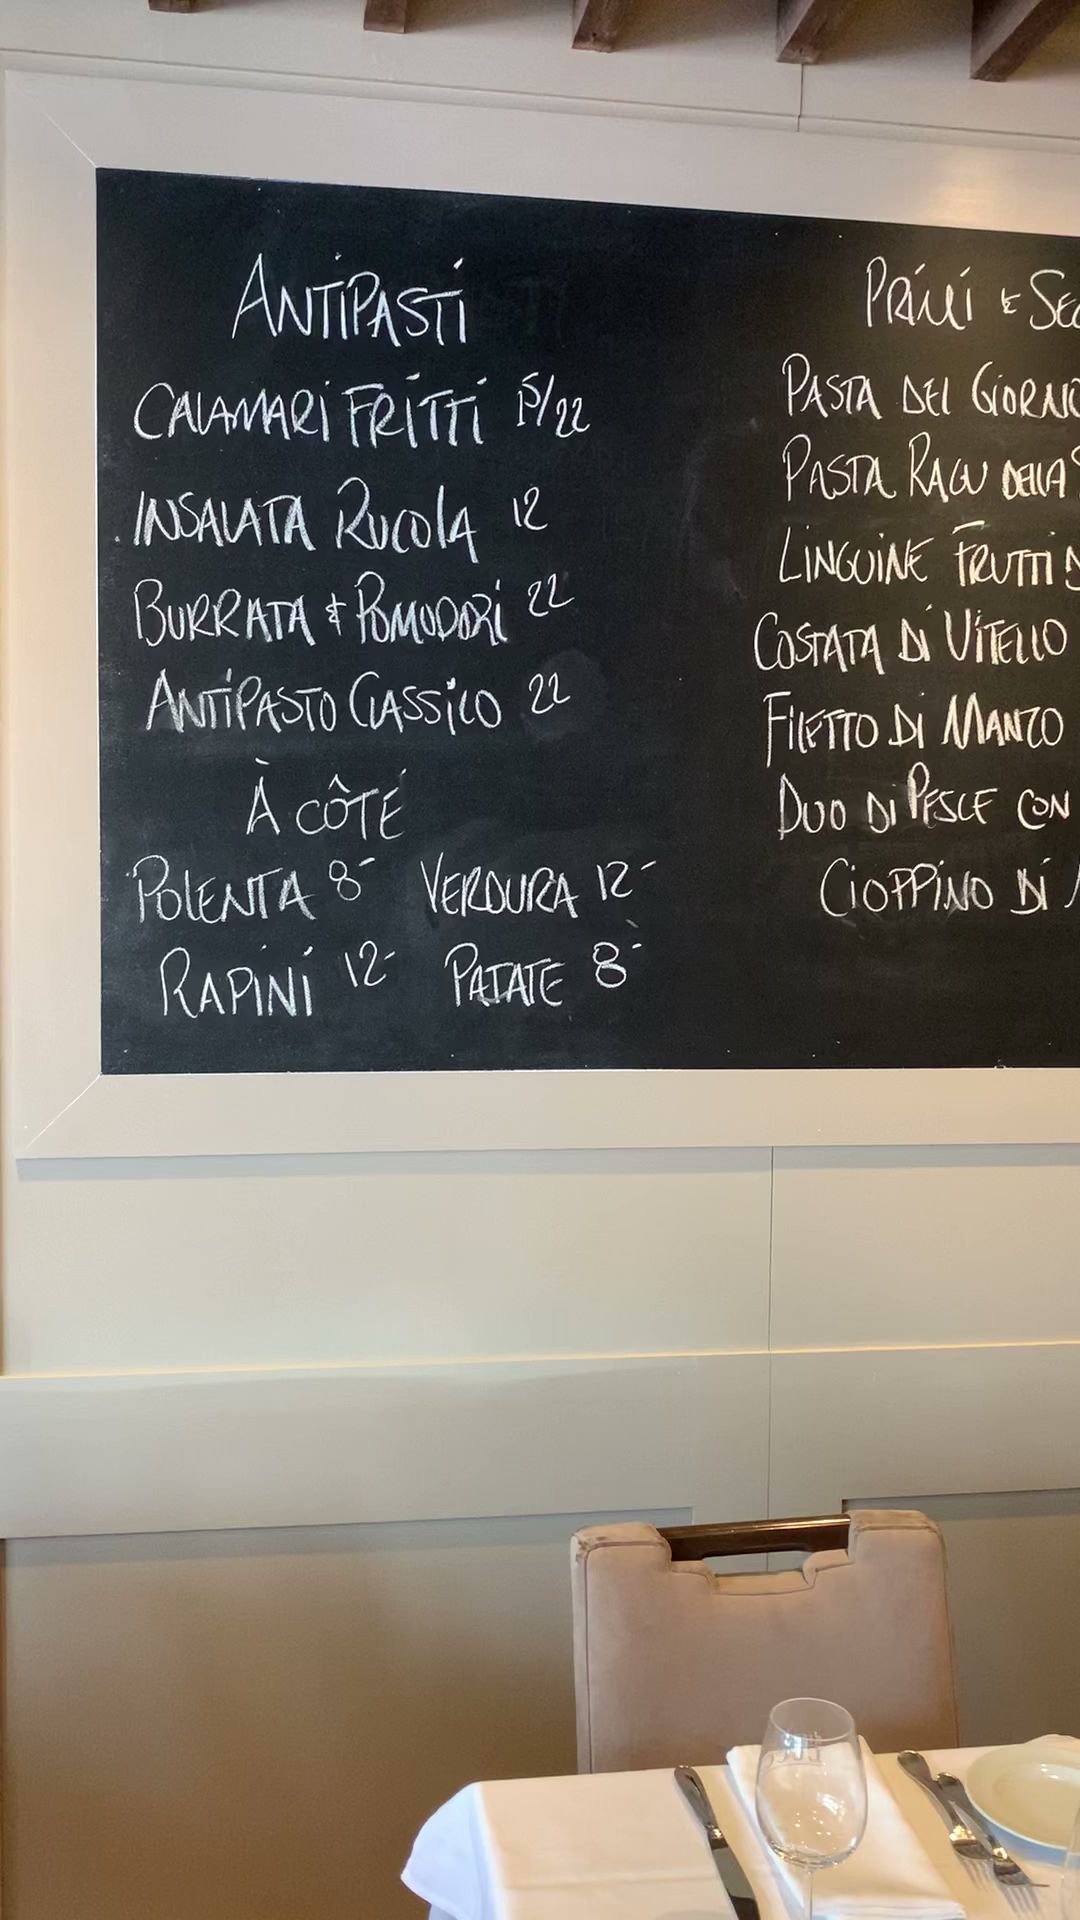 ANTIPASTI
CALAMARI FRITTI 15/22
INSALATA RUCOLA 12
BURRATA & POMODORI 22
ANTIPASTO CLASSICO 22
À CÔTÉ
POLENTA 8- VERDURA 12-
RAPINI 12- PATATE 8-
PRIMI & SEC
PASTA DEL GIORNO
PASTA RAGU DELLA
LINGUINE FRUTTI D
COSTATA DI VITELLO
FILETTO DI MANZO
DUO DI PESCE CON
CIOPPINO DI